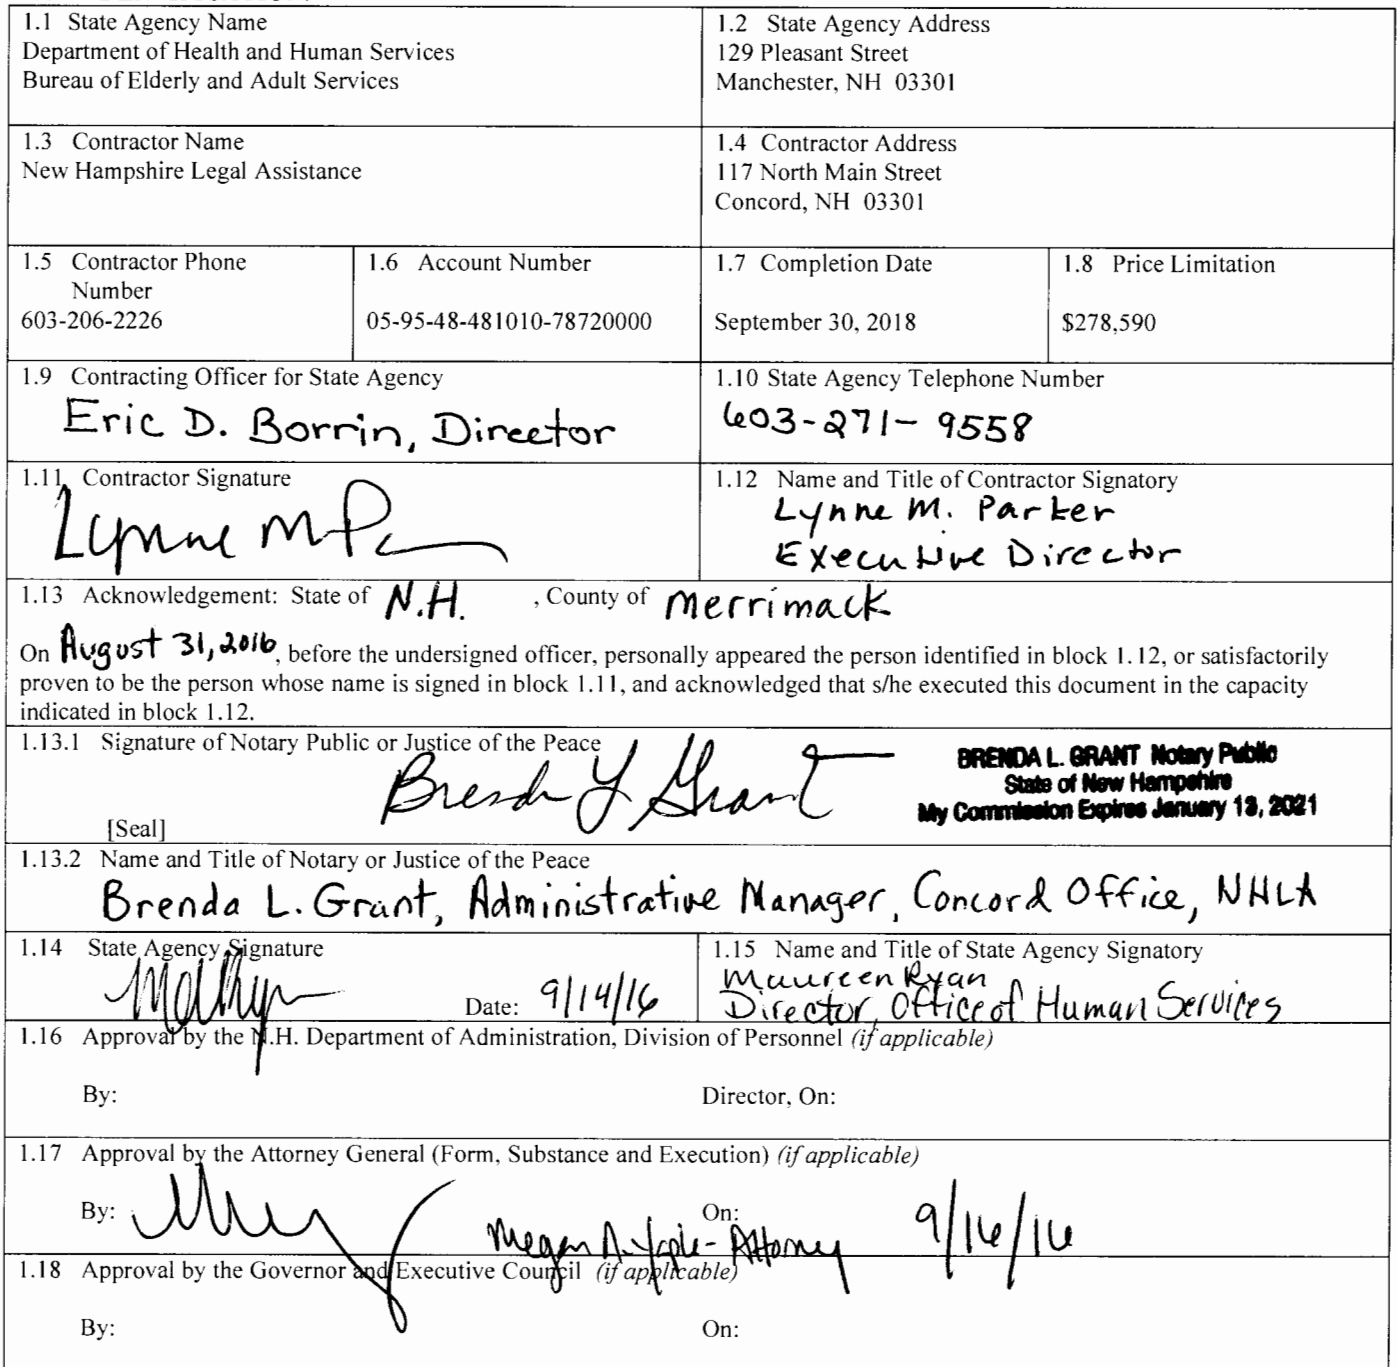 1.1 State Agency Name
Department of Health and Human Services
Bureau of Elderly and Adult Services
1.2 State Agency Address
129 Pleasant Street
Manchester, NH 03301
1.3 Contractor Name
New Hampshire Legal Assistance
1.4 Contractor Address
117 North Main Street
Concord, NH 03301
1.5 Contractor Phone
Number
603-206-2226
1.6 Account Number
05-95-48-481010-78720000
1.7 Completion Date
September 30, 2018
1.8 Price Limitation
$278,590
1.9 Contracting Officer for State Agency
Eric D. Borrin, Director
1.10 State Agency Telephone Number
603-271-9558
1.11 Contractor Signature
Lynne M P
1.12 Name and Title of Contractor Signatory
Lynne M. Parker
Executive Director
1.13 Acknowledgement: State of N.H. , County of Merrimack
On August 31, 2016, before the undersigned officer, personally appeared the person identified in block 1.12, or satisfactorily
proven to be the person whose name is signed in block 1.11, and acknowledged that s/he executed this document in the capacity
indicated in block 1.12.
1.13.1 Signature of Notary Public or Justice of the Peace
Brenda L Grant
BRENDA L. GRANT Notary Public
State of New Hampshire
My Commission Expires January 13, 2021
[Seal]
1.13.2 Name and Title of Notary or Justice of the Peace
Brenda L. Grant, Administrative Manager, Concord Office, NHLA
1.14 State Agency Signature
Date: 9/14/16
1.15 Name and Title of State Agency Signatory
Maureen Ryan
Director, Office of Human Services
1.16 Approval by the N.H. Department of Administration, Division of Personnel (if applicable)
By: Director, On:
1.17 Approval by the Attorney General (Form, Substance and Execution) (if applicable)
By: On: 9/16/16
Megan A. Yaple - Attorney
1.18 Approval by the Governor and Executive Council (if applicable)
By: On: